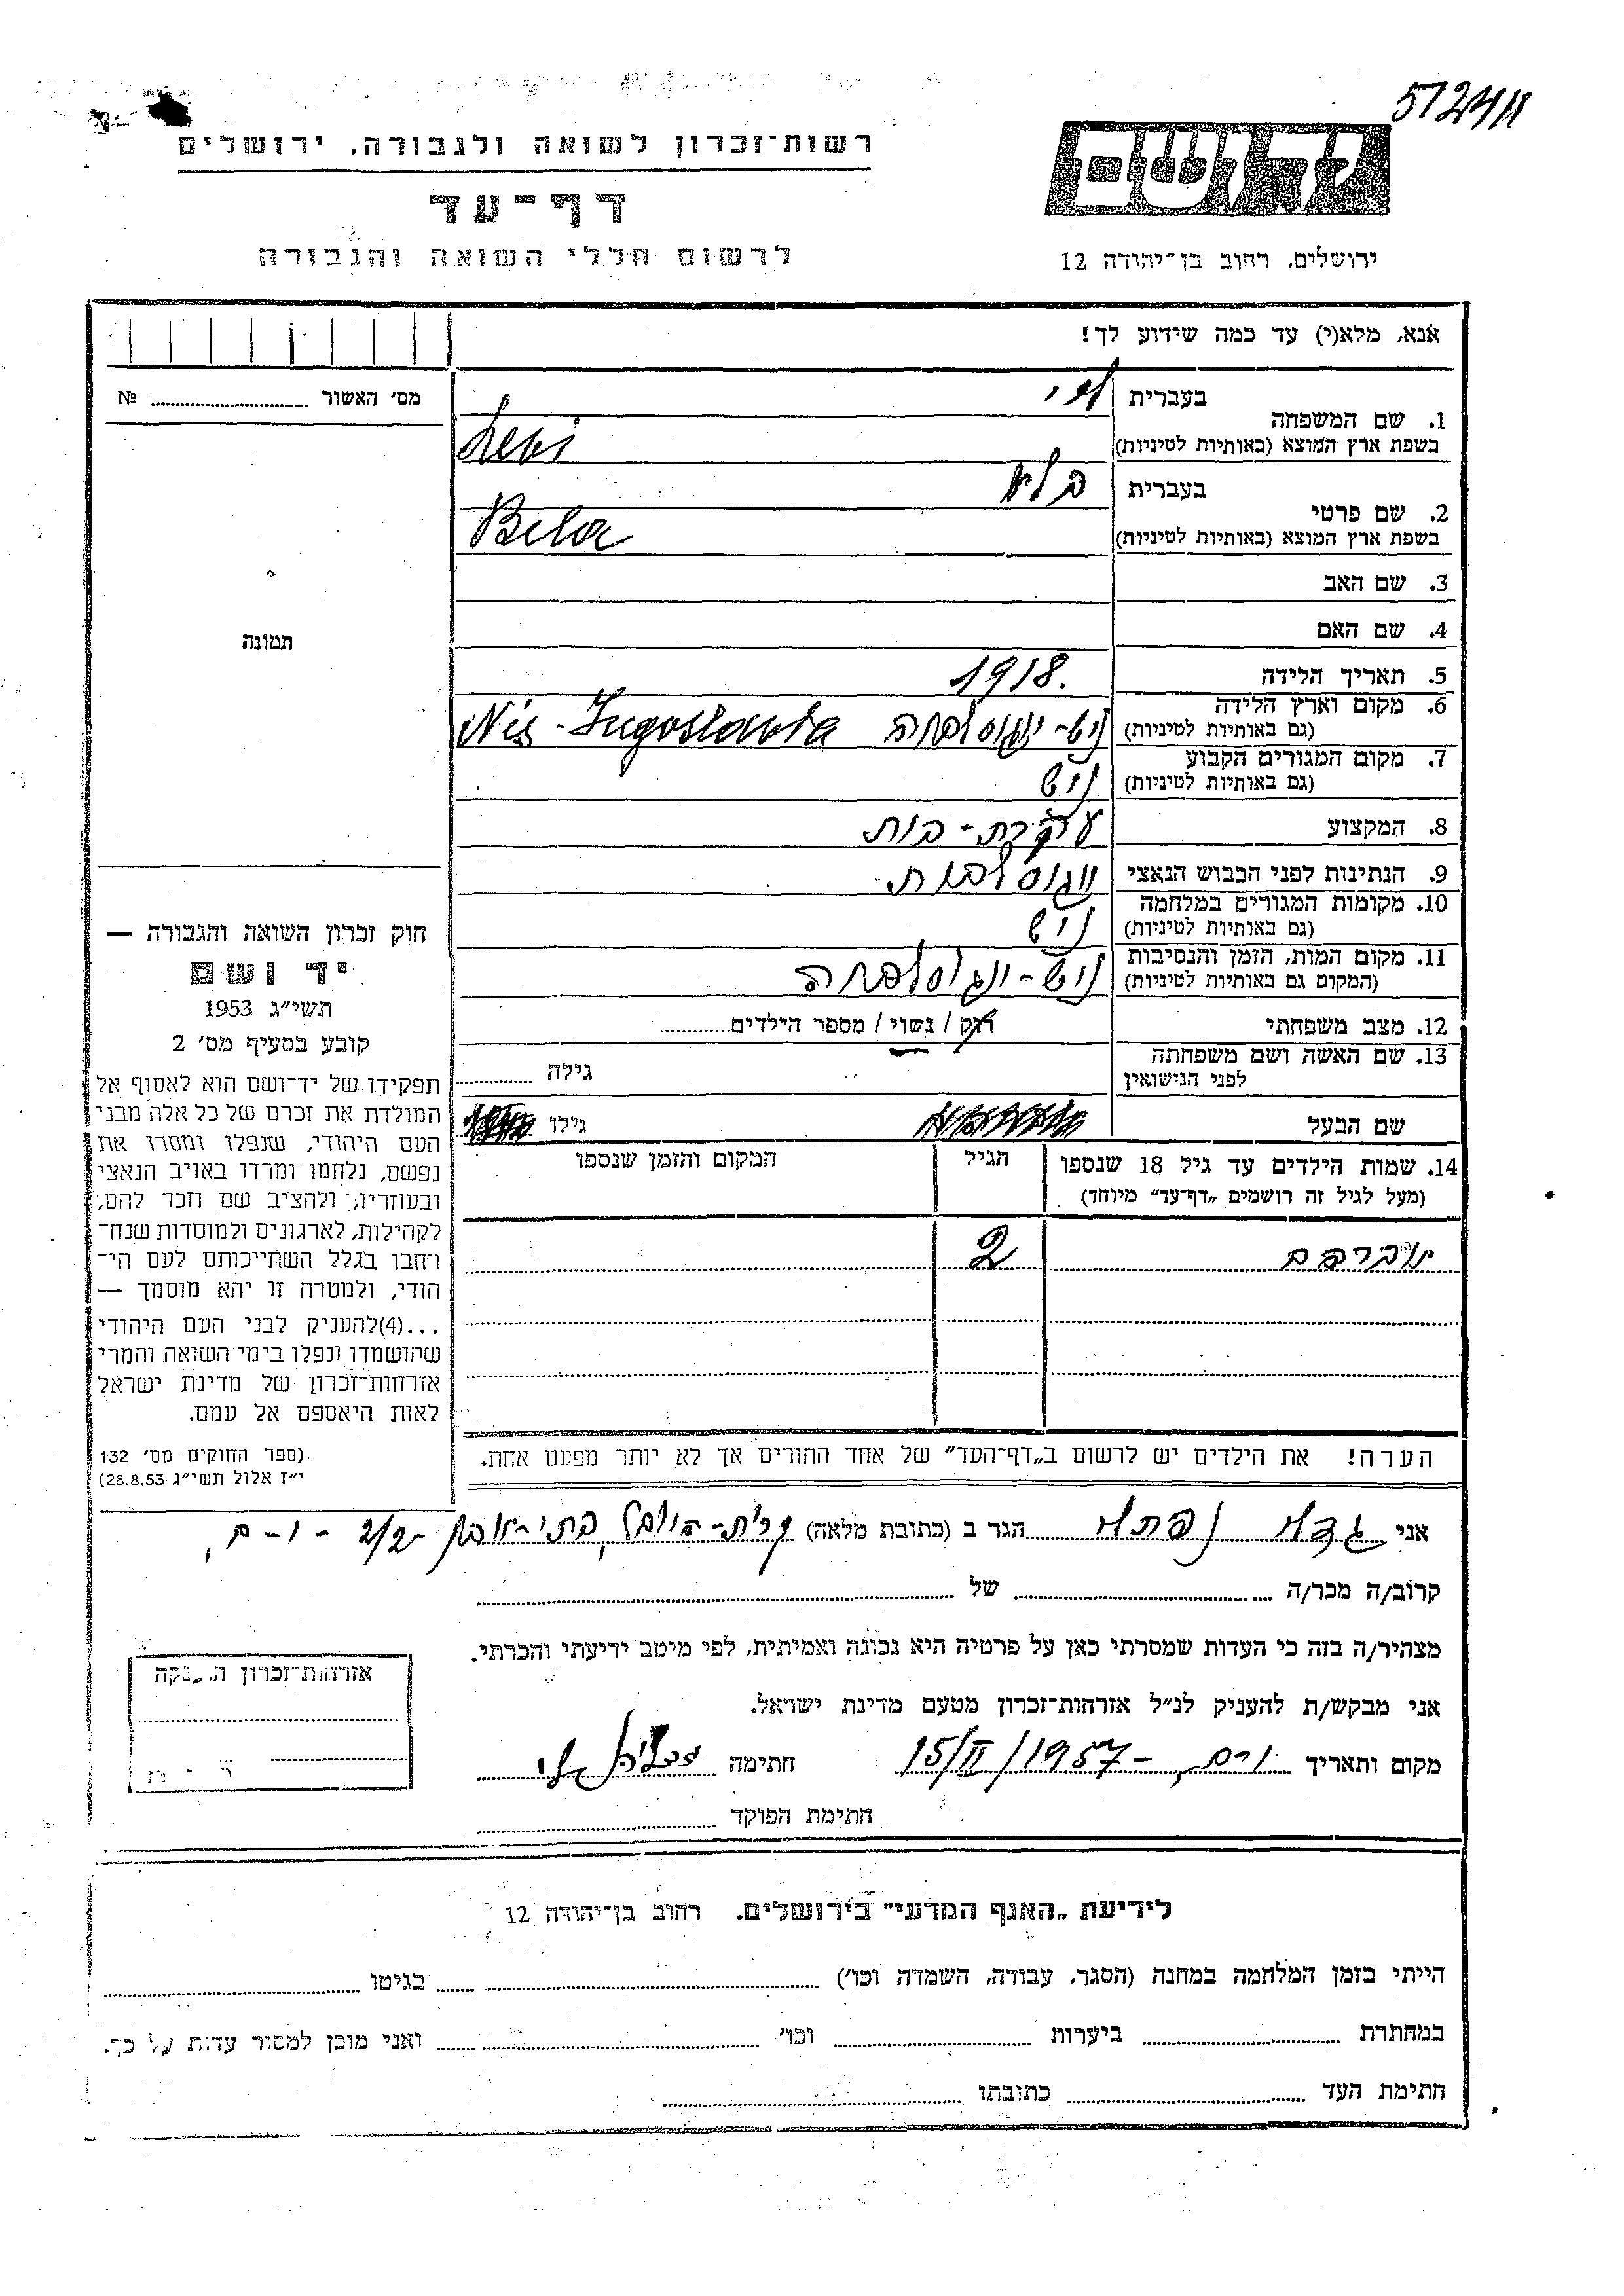 רשות־זכרון לשואה ולגבורה, ירושלים
דף־עד
לרשום חללי השואה והגבורה
יד ושם
ירושלים, רחוב בן־יהודה 12
אנא, מלא(י) עד כמה שידוע לך!
מס׳ האשור № ........
תמונה
1. שם המשפחה
בעברית לוי
בשפת ארץ המוצא (באותיות לטיניות) Levi
2. שם פרטי
בעברית בלה
בשפת ארץ המוצא (באותיות לטיניות) Bela
3. שם האב
4. שם האם
5. תאריך הלידה 1918.
6. מקום וארץ הלידה
(גם באותיות לטיניות) ניש - יוגוסלביה Nis - Jugoslavia
7. מקום המגורים הקבוע
(גם באותיות לטיניות) ניש
8. המקצוע עקרת-בית
9. הנתינות לפני הכבוש הנאצי יוגוסלבית
10. מקומות המגורים במלחמה
(גם באותיות לטיניות) ניש
11. מקום המות, הזמן והנסיבות
(המקום גם באותיות לטיניות) ניש - יוגוסלביה
12. מצב משפחתי רוק / נשוי / מספר הילדים........
13. שם האשה ושם משפחתה
לפני הנישואין
גילה ........
שם הבעל
גילו
14. שמות הילדים עד גיל 18 שנספו
(מעל לגיל זה רושמים „דף־עד״ מיוחד)
הגיל
המקום והזמן שנספו
אברהם 2
הערה! את הילדים יש לרשום ב„דף־העד״ של אחד ההורים אך לא יותר מפעם אחת.
חוק זכרון השואה והגבורה —
יד ושם
תשי״ג 1953
קובע בסעיף מס׳ 2
תפקידו של יד־ושם הוא לאסוף אל
המולדת את זכרם של כל אלה מבני
העם היהודי, שנפלו ומסרו את
נפשם, נלחמו ומרדו באויב הנאצי
ובעוזריו, ולהציב שם וזכר להם,
לקהילות, לארגונים ולמוסדות שנח־
רחבו בגלל השתייכותם לעם הי־
הודי, ולמטרה זו יהא מוסמך —
...(4)להעניק לבני העם היהודי
שהושמדו ונפלו בימי השואה והמרי
אזרחות־זכרון של מדינת ישראל
לאות היאספם אל עמם.
(ספר החוקים מס׳ 132
י״ז אלול תשי״ג 28.8.53)
אני הגר ב (כתובת מלאה) קרית-היובל,
קרוב/ה מכר/ה ........ של ........
מצהיר/ה בזה כי העדות שמסרתי כאן על פרטיה היא נכונה ואמיתית, לפי מיטב ידיעתי והכרתי.
אני מבקש/ת להעניק לנ״ל אזרחות־זכרון מטעם מדינת ישראל.
מקום ותאריך 15/II/1957 חתימה
חתימת הפוקד ........
אזרחות־זכרון
לידיעת „האגף המדעי״ בירושלים, רחוב בן־יהודה 12
הייתי בזמן המלחמה במחנה (הסגר, עבודה, השמדה וכו׳) ........ בגיטו ........
במחתרת ........ ביערות ........ וכו׳ ........ ואני מוכן למסור עדות על כך.
חתימת העד ........ כתובתו ........